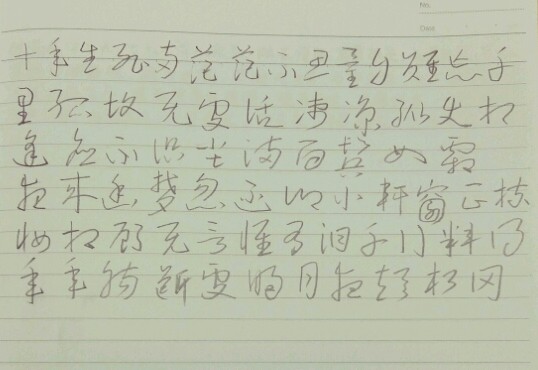 No.
Date
十年生死两茫茫不思量自难忘千
里孤坟无处话凄凉纵使相
逢应不识尘满面鬓如霜
夜来幽梦忽还乡小轩窗正梳
妆相顾无言惟有泪千行料得
年年肠断处明月夜短松冈